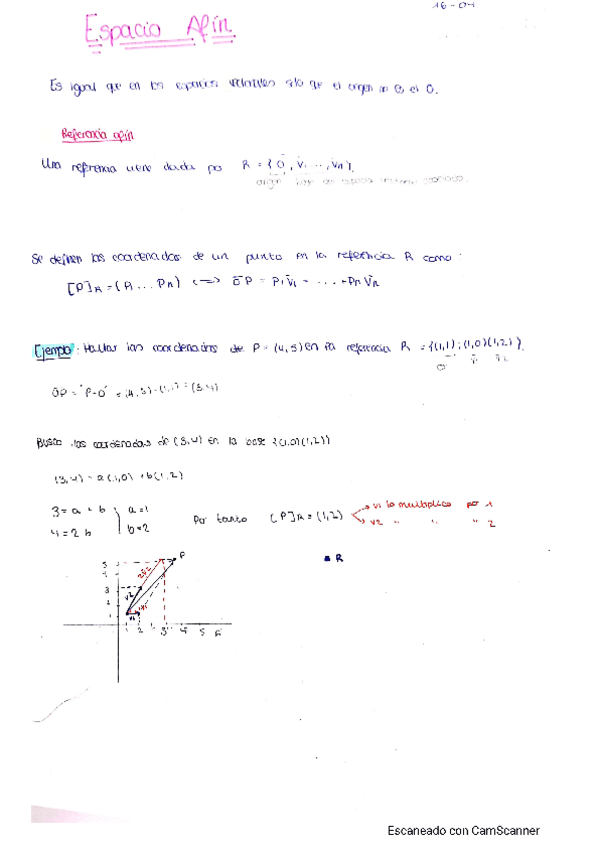 16-04
Espacio Afín
Es igual que en los espacios vectoriales solo que el origen no es el 0.
Referencia afín
Una referencia viene dada por R = {O, v̄1 ..., vn}.
origen base del espacio vectorial asociado.
Se definen las coordenadas de un punto en la referencia R como:
[P]R = (P1 ... Pn) <=> ŌP = P1 v̄1 + ... + Pn v̄n
Ejemplo: Hallar las coordenadas de P = (4,5) en la referencia R = {(1,1); (1,0)(1,2)}.
O v̄1 v̄2
ŌP = "P-O" = (4,5)-(1,1) = (3,4)
Busco las coordenadas de (3,4) en la base {(1,0)(1,2)}
(3,4) = a(1,0) + b(1,2)
3 = a + b } a=1
4 = 2b } b=2
Por tanto [P]R = (1,2) → v1 lo multiplico por 1
→ v2 " " " 2
R
P
5
4
3
2
1
2v2
v2
v1
1 2 3 4 5 6
Escaneado con CamScanner